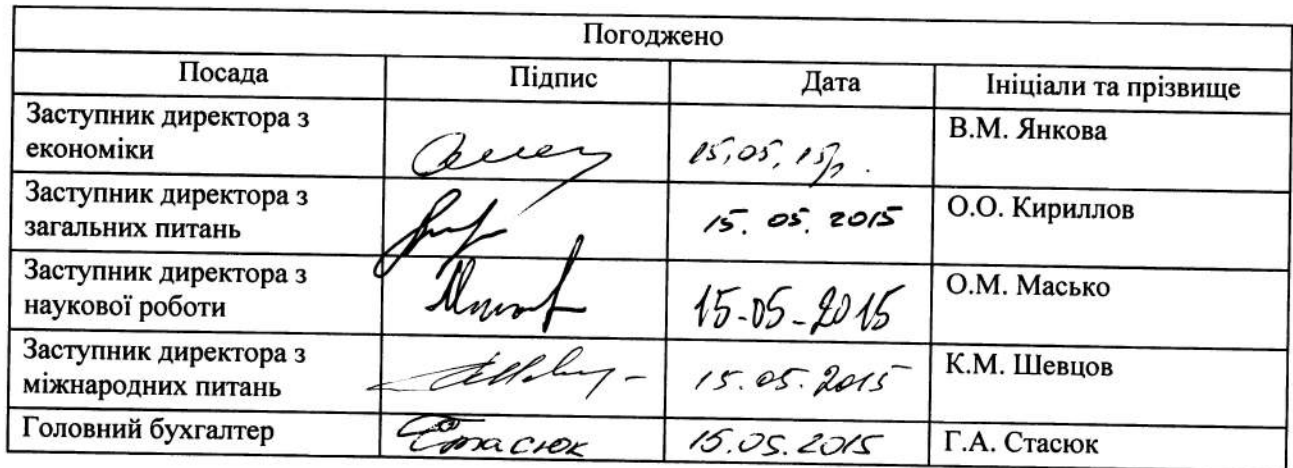 Погоджено
Посада Підпис Дата Ініціали та прізвище
Заступник директора з
економіки 15,05,15р. В.М. Янкова
Заступник директора з
загальних питань 15.05.2015 О.О. Кириллов
Заступник директора з
наукової роботи 15-05-2015 О.М. Масько
Заступник директора з
міжнародних питань 15.05.2015 К.М. Шевцов
Головний бухгалтер Стасюк 15.05.2015 Г.А. Стасюк